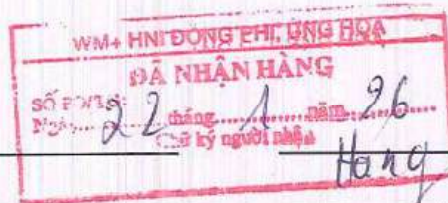 WM+ HNI ĐỒNG PHI, ỨNG HÒA
ĐÃ NHẬN HÀNG
Ngày 22 tháng 1 năm 26
Chữ ký người nhận
Hang